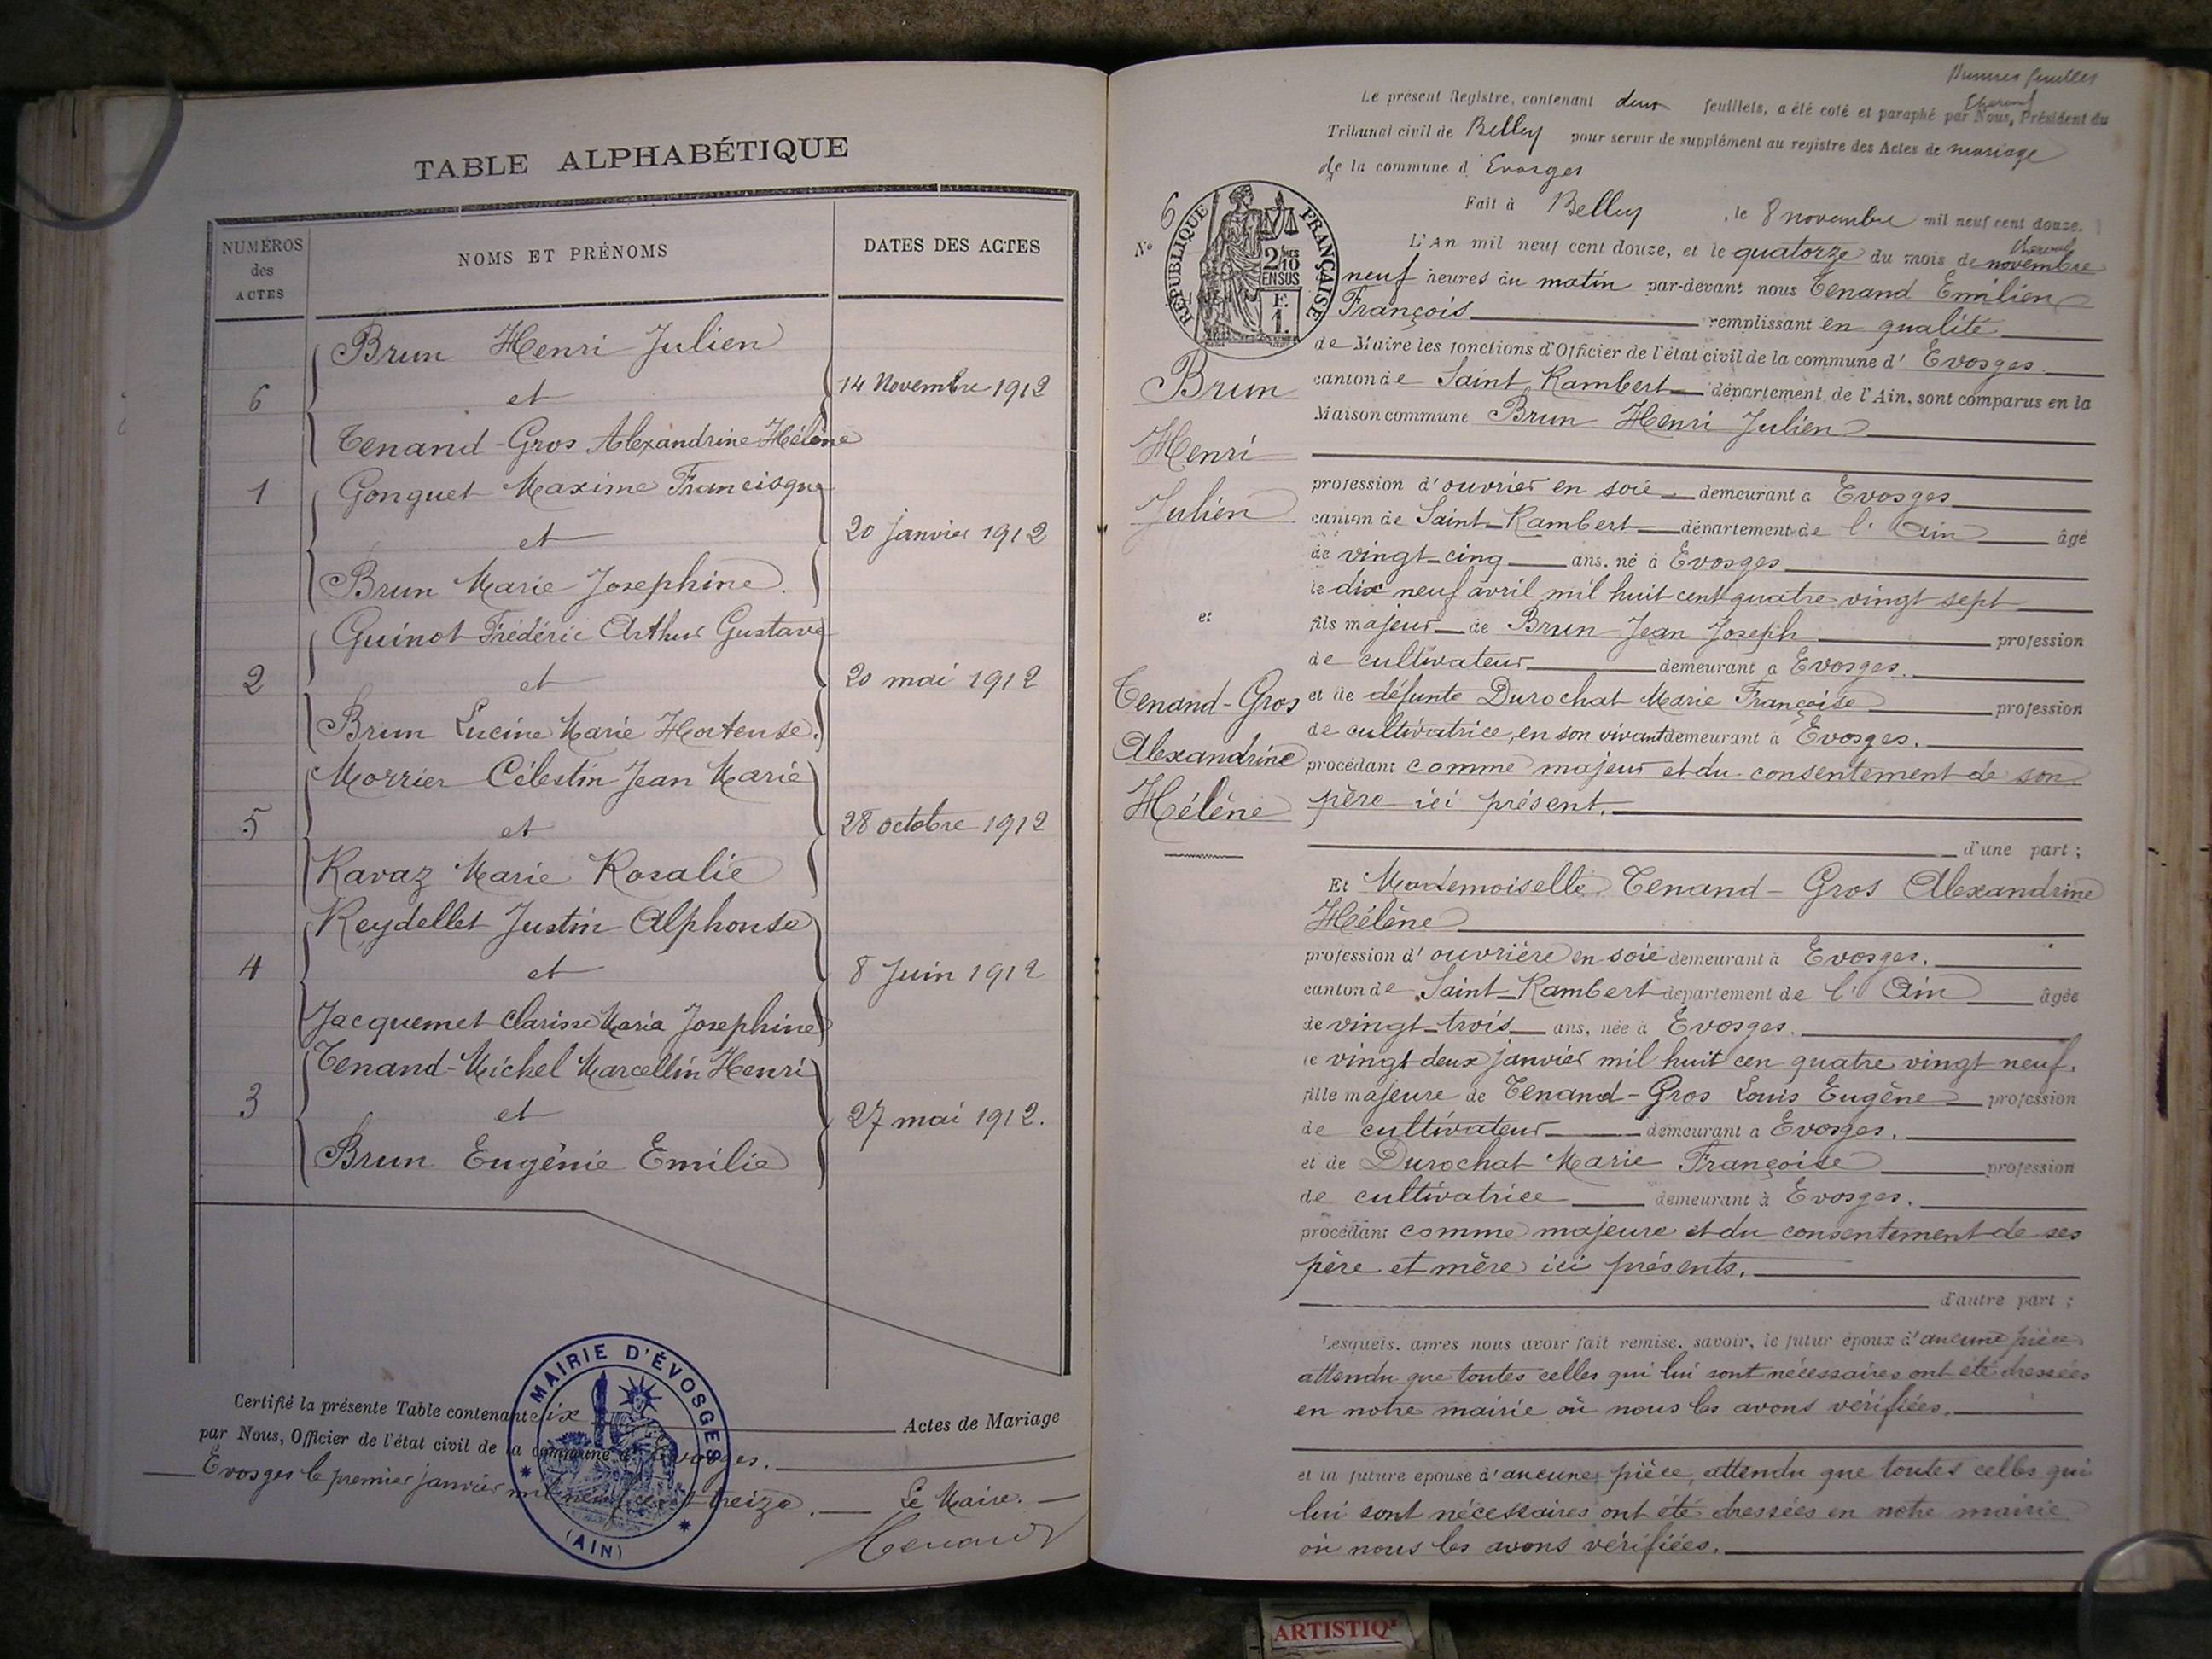 TABLE ALPHABÉTIQUE
NUMÉROS des ACTES
NOMS ET PRÉNOMS
DATES DES ACTES
Brun Henri Julien
6 et 14 Novembre 1912
Tenand-Gros Alexandrine Hélène
1 Gonguet Maxime Francisque
et 20 janvier 1912
Brun Marie Josephine.
Guinot Frédéric Arthur Gustave
2 et 20 mai 1912
Brun Lucine Marie Hortense.
Morrier Célestin Jean Marie
5 et 28 octobre 1912
Ravaz Marie Rosalie
Reydellet Justin Alphonse
4 et 8 Juin 1912
Jacquemet Clarisse Maria Josephine
Tenand-Michel Marcellin Henri
3 et 27 mai 1912.
Brun Eugénie Emilie
Certifié la présente Table contenant six Actes de Mariage
par Nous, Officier de l'état civil de la commune d'Evosges.
Evosges le premier janvier mil neuf cent treize. Le Maire.
Tenand
MAIRIE D'ÉVOSGES
(AIN)
feuillet
Le présent Registre, contenant deux feuillets, a été coté et paraphé par Nous, Président du
Tribunal civil de Belley pour servir de supplément au registre des Actes de mariage
de la commune d'Evosges
Fait à Belley, le 8 novembre mil neuf cent douze.
N° 6
RÉPUBLIQUE FRANÇAISE
2/10 EN SUS
F. 1.
L'An mil neuf cent douze, et le quatorze du mois de novembre
neuf heures du matin par-devant nous Tenand Emilien
François remplissant en qualité
de Maire les fonctions d'Officier de l'état civil de la commune d' Evosges
canton de Saint-Rambert département de l'Ain, sont comparus en la
Maison commune Brun Henri Julien
Brun
Henri
Julien
et
Tenand-Gros
Alexandrine
Hélène
profession d'ouvrier en soie demeurant à Evosges
canton de Saint-Rambert département de l'Ain âgé
de vingt-cinq ans, né à Evosges
le dix neuf avril mil huit cent quatre vingt sept
fils majeur de Brun Jean Joseph profession
de cultivateur demeurant à Evosges.
et de défunte Durochat Marie Françoise profession
de cultivatrice, en son vivant demeurant à Evosges.
procédant comme majeur et du consentement de son
père ici présent.
d'une part ;
Et Mademoiselle Tenand-Gros Alexandrine
Hélène
profession d'ouvrière en soie demeurant à Evosges.
canton de Saint-Rambert département de l'Ain âgée
de vingt-trois ans, née à Evosges.
le vingt deux janvier mil huit cen quatre vingt neuf.
fille majeure de Tenand-Gros Louis Eugène profession
de cultivateur demeurant à Evosges.
et de Durochat Marie Françoise profession
de cultivatrice demeurant à Evosges.
procédant comme majeure et du consentement de ses
père et mère ici présents.
d'autre part ;
Lesquels, après nous avoir fait remise, savoir, le futur époux d'aucune pièce
attendu que toutes celles qui lui sont nécessaires ont été dressées
en notre mairie où nous les avons vérifiées.
et la future épouse d'aucune pièce, attendu que toutes celles qui
lui sont nécessaires ont été dressées en notre mairie
où nous les avons vérifiées.
ARTISTIQ